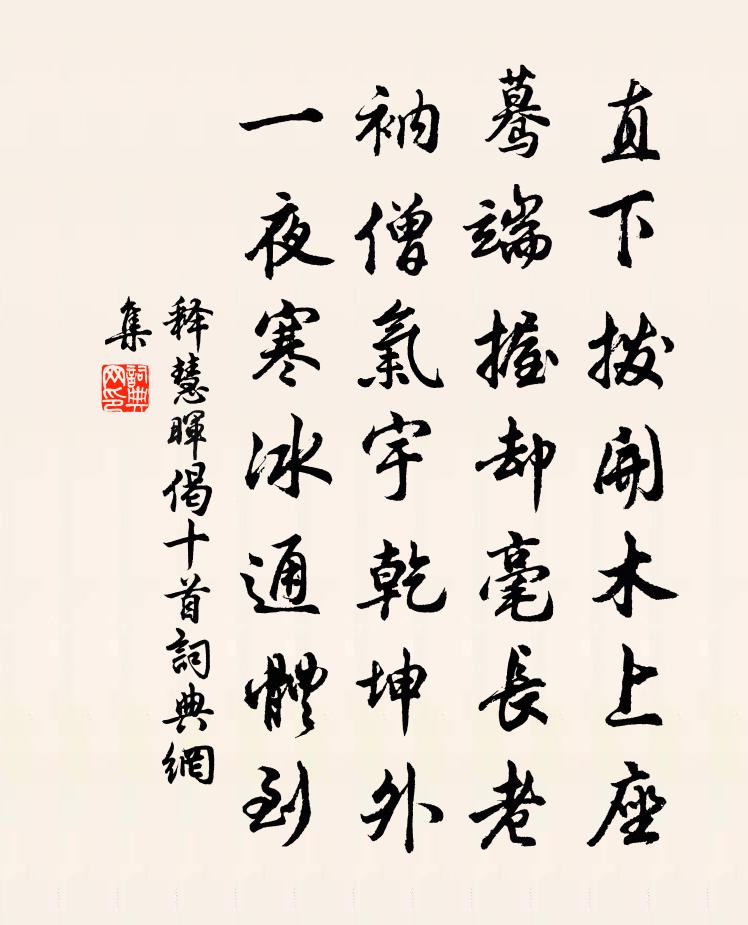 直下拨開木上座
驀端握却毫長老
衲僧氣宇乾坤外
一夜寒冰通體到
释慧暉偈十首詞典網
集
詞典
网印